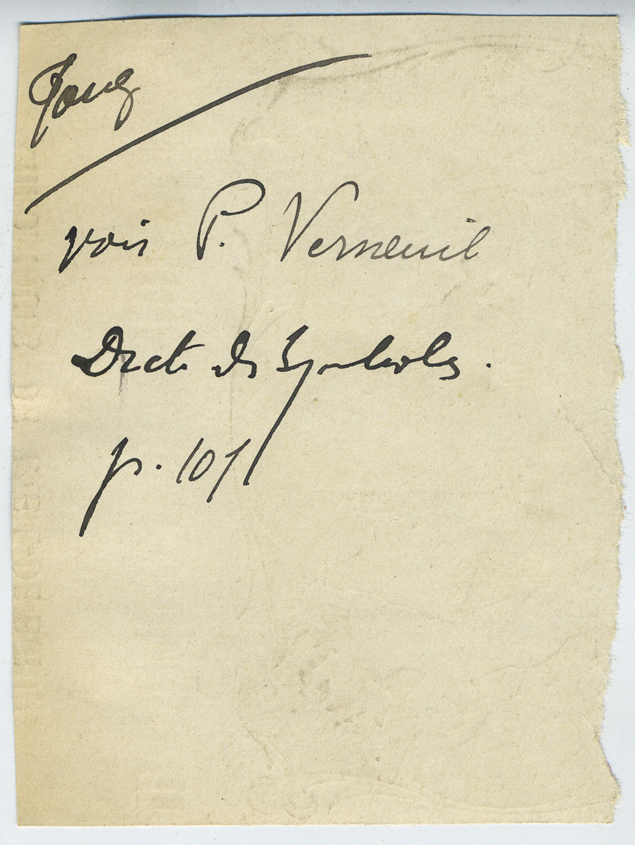 Joug
voir P. Verneuil
Dict. des Symboles.
p. 101